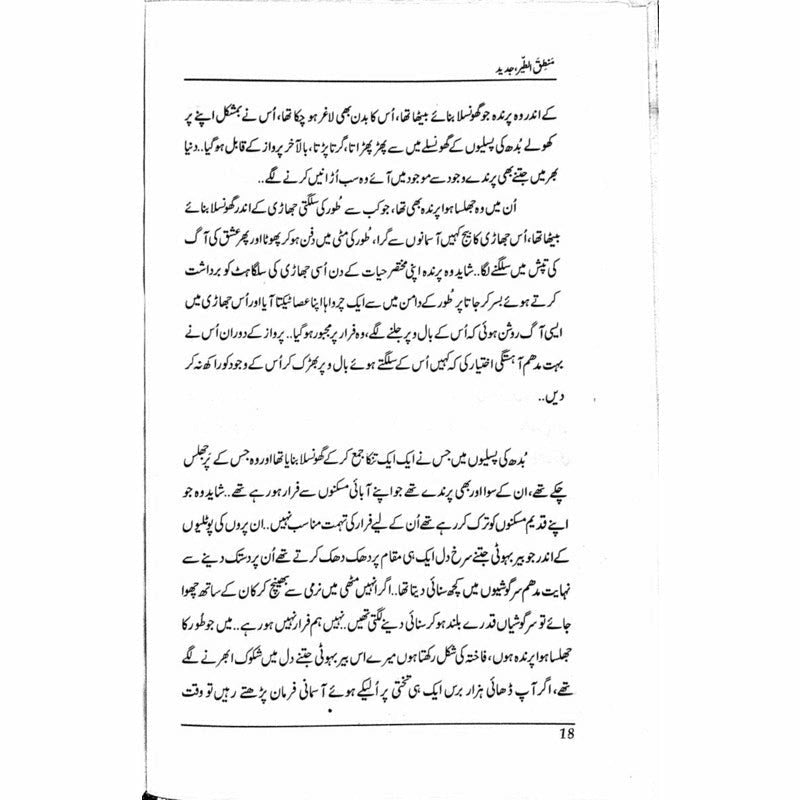 منطِقُ الطّیر، جدید
کے اندر وہ پرندہ جو گھونسلا بنائے بیٹھا تھا، اُس کا بدن بھی لاغر ہو چکا تھا، اُس نے بمشکل اپنے پر
کھولے بُدھ کی پسلیوں کے گھونسلے میں سے پھڑپھڑاتا، گرتا پڑتا، بالآخر پرواز کے قابل ہو گیا.. دنیا
بھر میں جتنے بھی پرندے وجود سے موجود میں آئے وہ سب اُڑانیں کرنے لگے..
اُن میں وہ جھلسا ہوا پرندہ بھی تھا، جو کب سے طُور کی سلگتی جھاڑی کے اندر گھونسلا بنائے
بیٹھا تھا، اُس جھاڑی کا بیج کہیں آسمانوں سے گرا، طُور کی مٹی میں دفن ہو کر پھوٹا اور پھر عشق کی آگ
کی تپش میں سلگنے لگا.. شاید وہ پرندہ اپنی مختصر حیات کے دن اُسی جھاڑی کی سلگاہٹ کو برداشت
کرتے ہوئے بسر کر جاتا پر طُور کے دامن میں سے ایک چرواہا اپنا عصا ٹیکتا آیا اور اُس جھاڑی میں
ایسی آگ روشن ہوئی کہ اُس کے بال و پر جلنے لگے، وہ فرار پر مجبور ہو گیا.. پرواز کے دوران اُس نے
بہت مدھم آہستگی اختیار کی کہ کہیں اُس کے سلگتے ہوئے بال و پر بھڑک کر اُس کے وجود کو راکھ نہ کر
دیں..
بُدھ کی پسلیوں میں جس نے ایک ایک تنکا جمع کر کے گھونسلا بنایا تھا اور وہ جس کے پَر جھلس
چکے تھے، ان کے سوا اور بھی پرندے تھے جو اپنے آبائی مسکنوں سے فرار ہو رہے تھے.. شاید وہ جو
اپنے قدیم مسکنوں کو ترک کر رہے تھے اُن کے لیے فرار کی تہمت مناسب نہیں.. اِن پروں کی پوٹلیوں
کے اندر جو بیر بہوٹی جتنے سرخ دل ایک ہی مقام پر دھک دھک کرتے تھے اُن پر دستک دینے سے
نہایت مدھم سرگوشیوں میں کچھ سنائی دیتا تھا.. اگر انہیں مٹھی میں نرمی سے بھینچ کر کان کے ساتھ چھوا
جائے تو سرگوشیاں قدرے بلند ہو کر سنائی دینے لگتی تھیں.. نہیں ہم فرار نہیں ہو رہے.. میں جو طور کا
جھلسا ہوا پرندہ ہوں، فاختہ کی شکل رکھتا ہوں میرے اس بیر بہوٹی جتنے دل میں شکوک ابھرنے لگے
تھے، اگر آپ ڈھائی ہزار برس ایک ہی تختی پر اُلیکے ہوئے آسمانی فرمان پڑھتے رہیں تو وقت
18